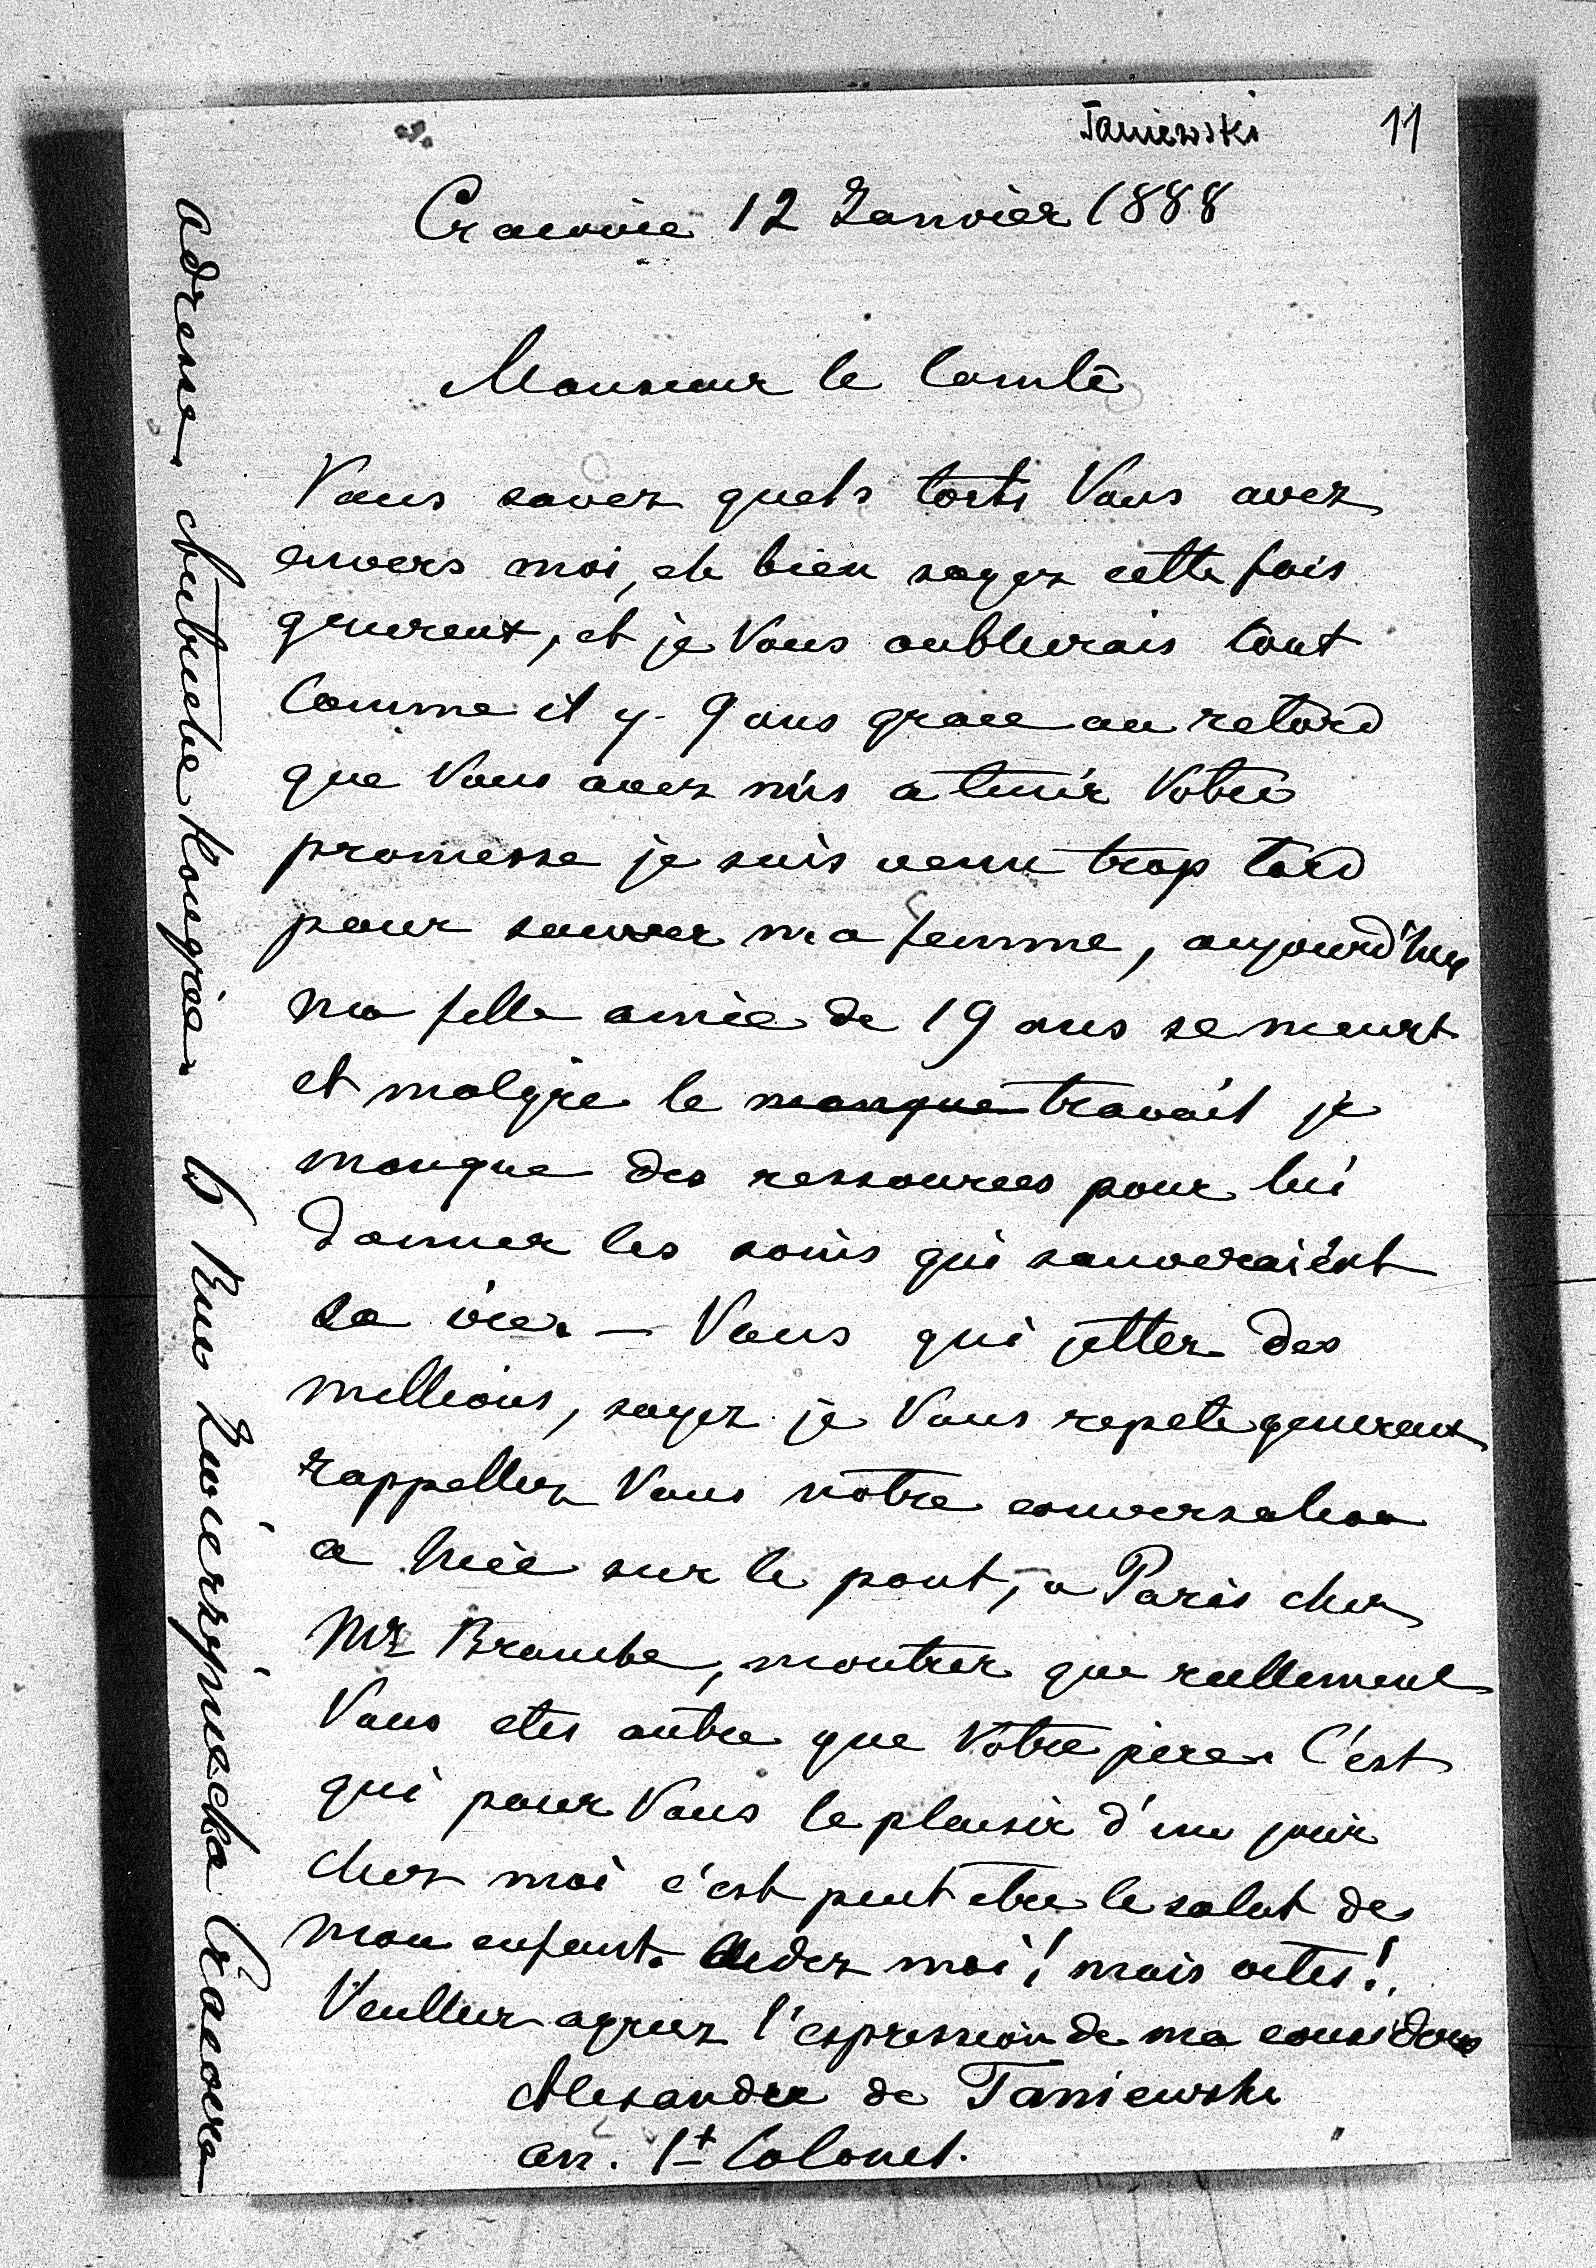 Taniewski 11
Cracovie 12 Janvier 1888
Monsieur le Comte
Vous savez quels torts Vous avez
envers moi, eh bien soyez cette fois
genereux, et je Vous oublierais tout
Comme il y 9 ans grace au retard
que Vous avez mis a tenir Votre
promesse je suis venu trop tard
pour sauver ma femme, aujourd'huy
ma fille ainée de 19 ans se meurt
et malgre le manque travail je
manque des ressources pour lui
donner les soins qui sauveraient
sa vie. — Vous qui jetter des
millions, soyez je Vous repete genereux
rappellez Vous notre conversation
a Nice sur le pont, a Paris chez
Mr, montrez que reellement
Vous etes autre que Votre pere. C'est
qui pour Vous le plaisir d'un jour
chez moi c'est peut etre le salut de
mon enfant. Aidez moi! mais vites!
Veuillez agreez l'expression de ma
Alexandre de Taniewski
an. Lt Colonel.
adresse Hongroise 6 Rue Zwierzyniecka Cracovie